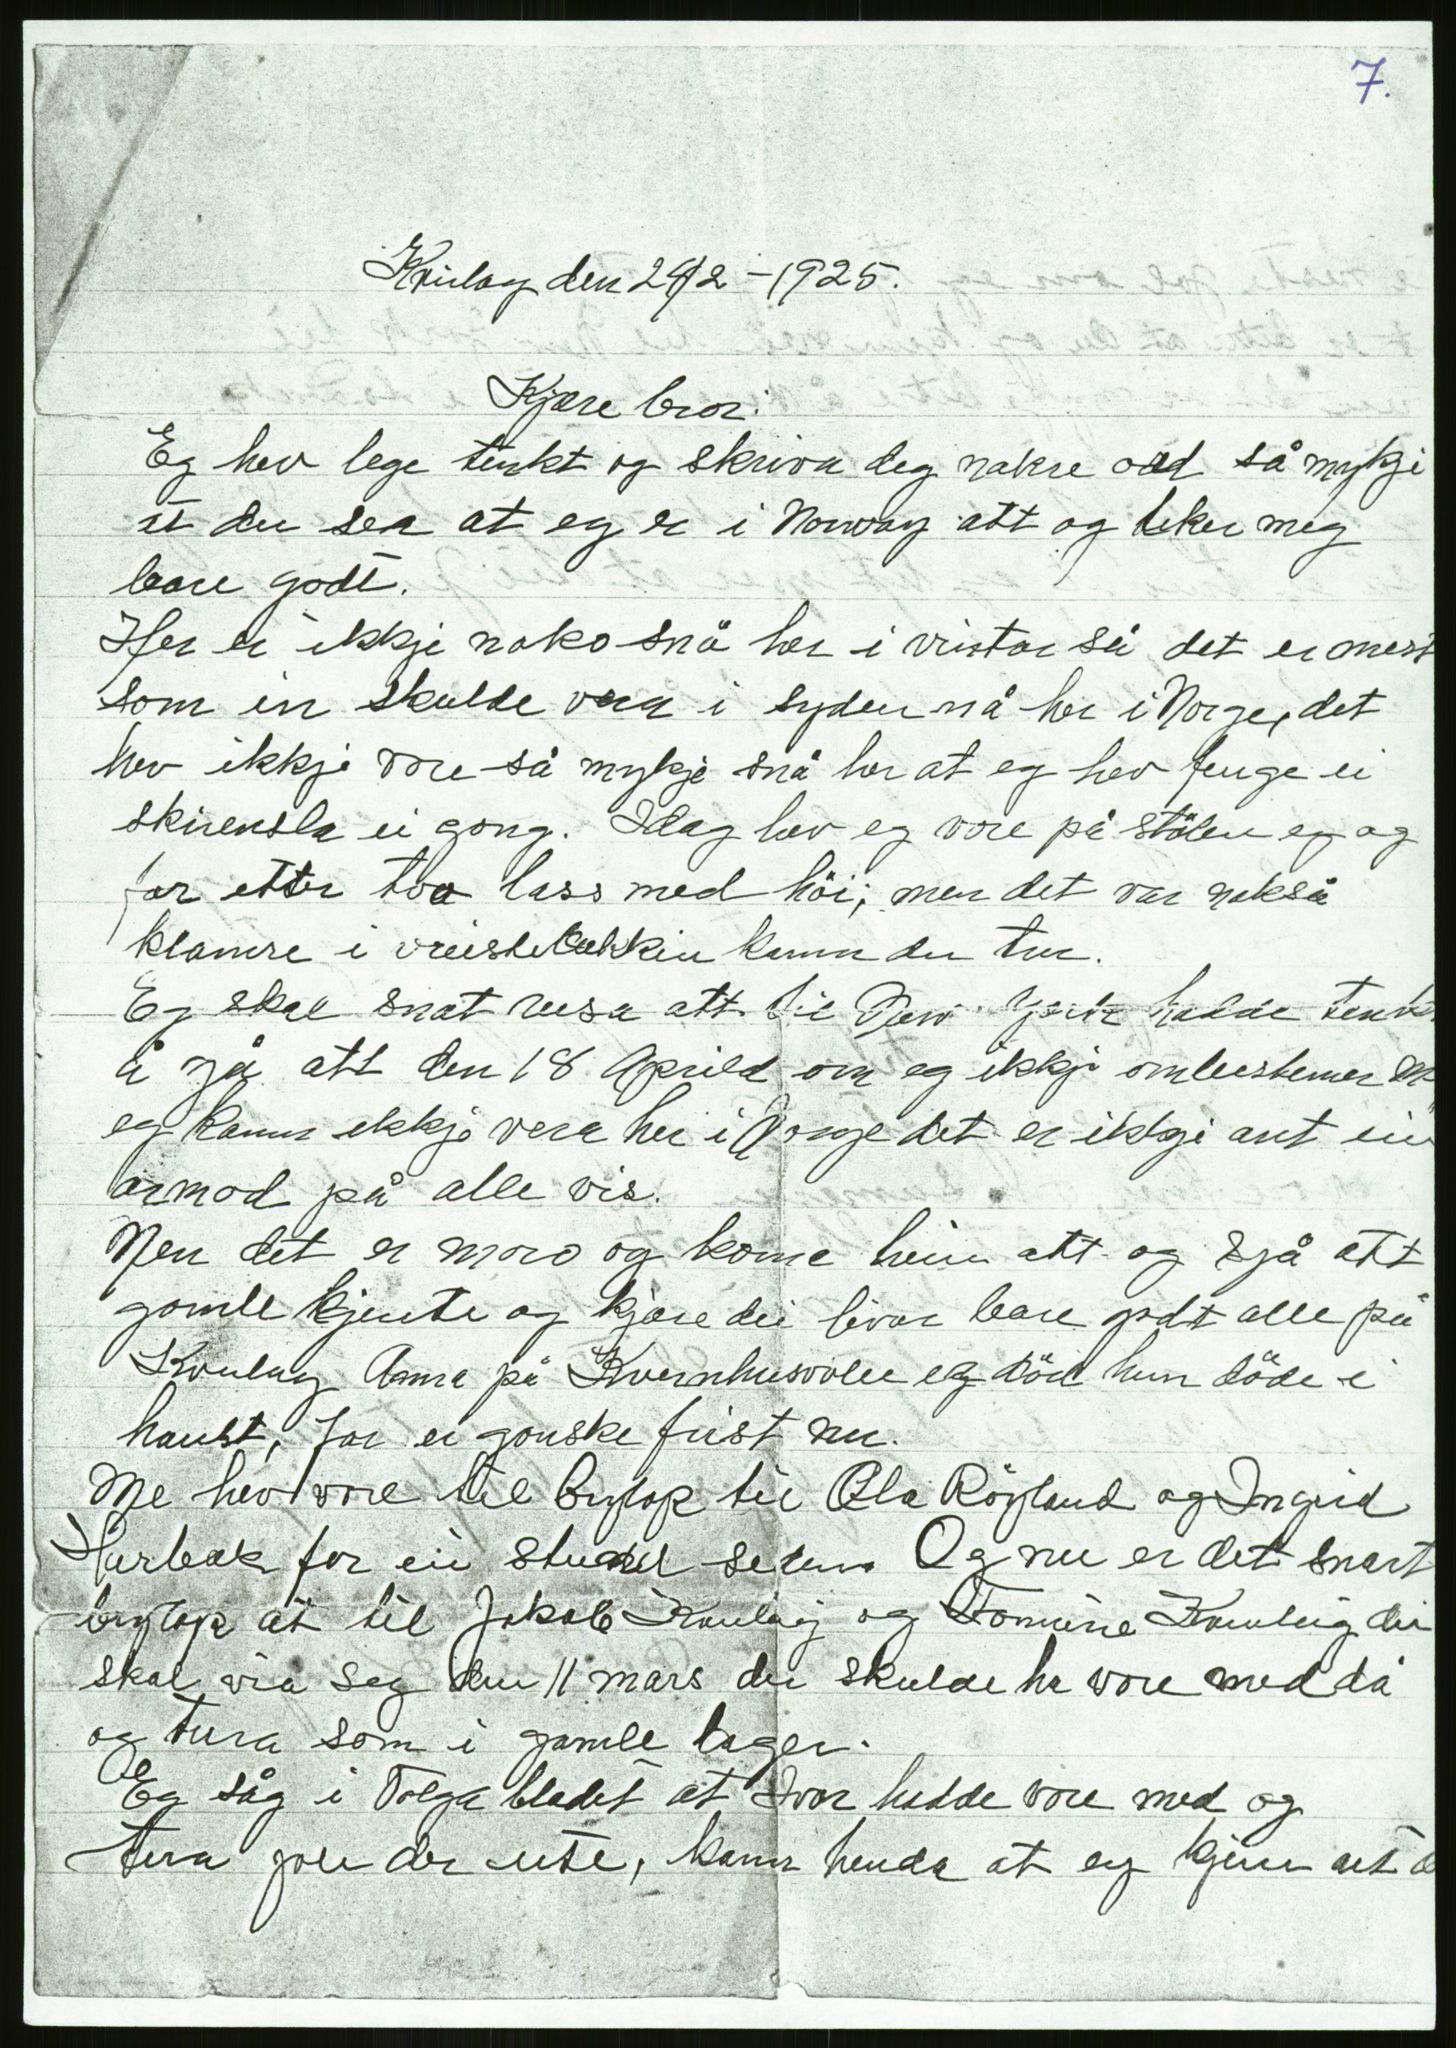 7.
Kvilag den 24/2-1925.
Kjære bror:
Eg hev lege tenkt og skriva deg nakre ord så mykji
at du ser at eg er i Norway att og liker meg
bare godt.
Her er ikkje noko snå her i vintar så det er mest
som ein skulde vera i syden nå her i Norge, det
hev ikkje vore så mykje snå her at eg hev fenge ei
skirensla ei gong. Idag hev eg vore på stölen eg og
far etter tvo lass med höi; men det var nokså
klamre i kann du tru.
Eg skal snat reisa att til New York hadde tenkt
å gå att den 18 Aprild om eg ikkje ombestemer m
eg kann ikkje vera her i Norge det er ikkje ant ein
armod på alle vis.
Men det er moro og koma heim att og sjå att
gamle kjente og kjære dei livar bare godt alle på
Anna på Kvernhusvolle er död hun döde i
haust, far er gonske frist nu.
Me hev vore til brylop til Ola Röyland og Ingrid
Hurbak for ei stund sidan. Og nu er det snart
brylop åt til Jakob og Tomine dei
skal via seg den 11 mars du skulde ha vore med då
og tura som i gamle dager.
Eg såg i Telga bladet at Ivar hadde vore med og
tura jole der ute, kann henda at eg kjem att